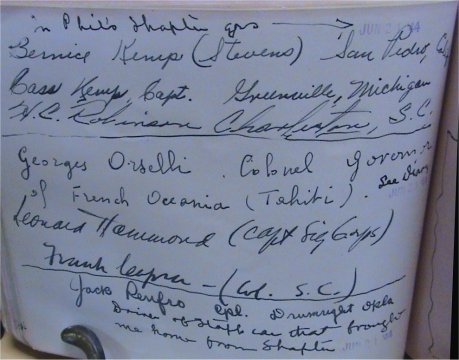 in Phil's Shafter gps → JUN 2 1 '44
Bernice Kemp (Stevens) San Pedro, Cal
Cass Kemp, Capt. Greenville, Michigan
H.C. Robinson Charleston, S.C.
Georges Orselli. Colonel Governor
of French Oceania (Tahiti). See Diary
Leonard Hammond (Capt Sig Corps)
Frank - (Col. S.C.)
Jack Renfro Cpl. Drumright Okla
Driver of staff car that brought
me home from Shafter